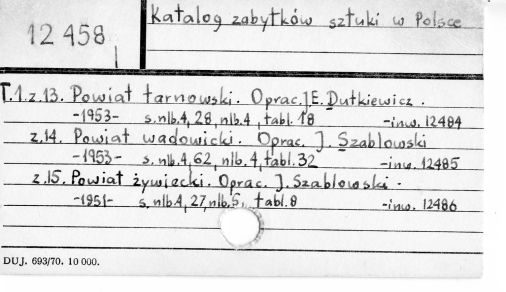 12 458
Katalog zabytków sztuki w Polsce
T.1.z.13. Powiat tarnowski. Oprac. J.E. Dutkiewicz.
-1953- s.nlb.4, 28, nlb.4, tabl.18 -inw. 12484
z.14. Powiat wadowicki. Oprac. J. Szablowski
-1953- s.nlb.4, 62, nlb.4, tabl.32 -inw. 12485
z.15. Powiat żywiecki. Oprac. J. Szablowski.
-1951- s.nlb.4, 27, nlb.5, tabl.8 -inw. 12486
DUJ. 693/70. 10 000.